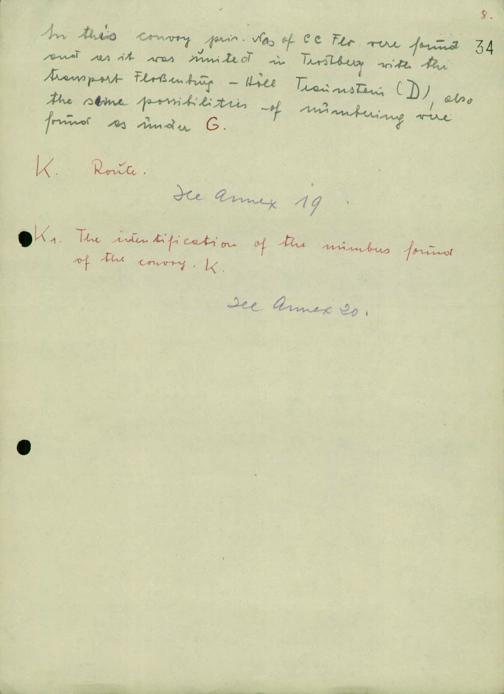 8.
34
In this convoy pris. Nos of CC Flo were found
and as it was united in Trostberg with the
transport Floßenbürg - Höll Traunstein (D), also
the same possibilities of numbering were
found as under G.
K. Route.
See Annex 19
K1. The identification of the numbers found
of the convoy. K.
See Annex 20.